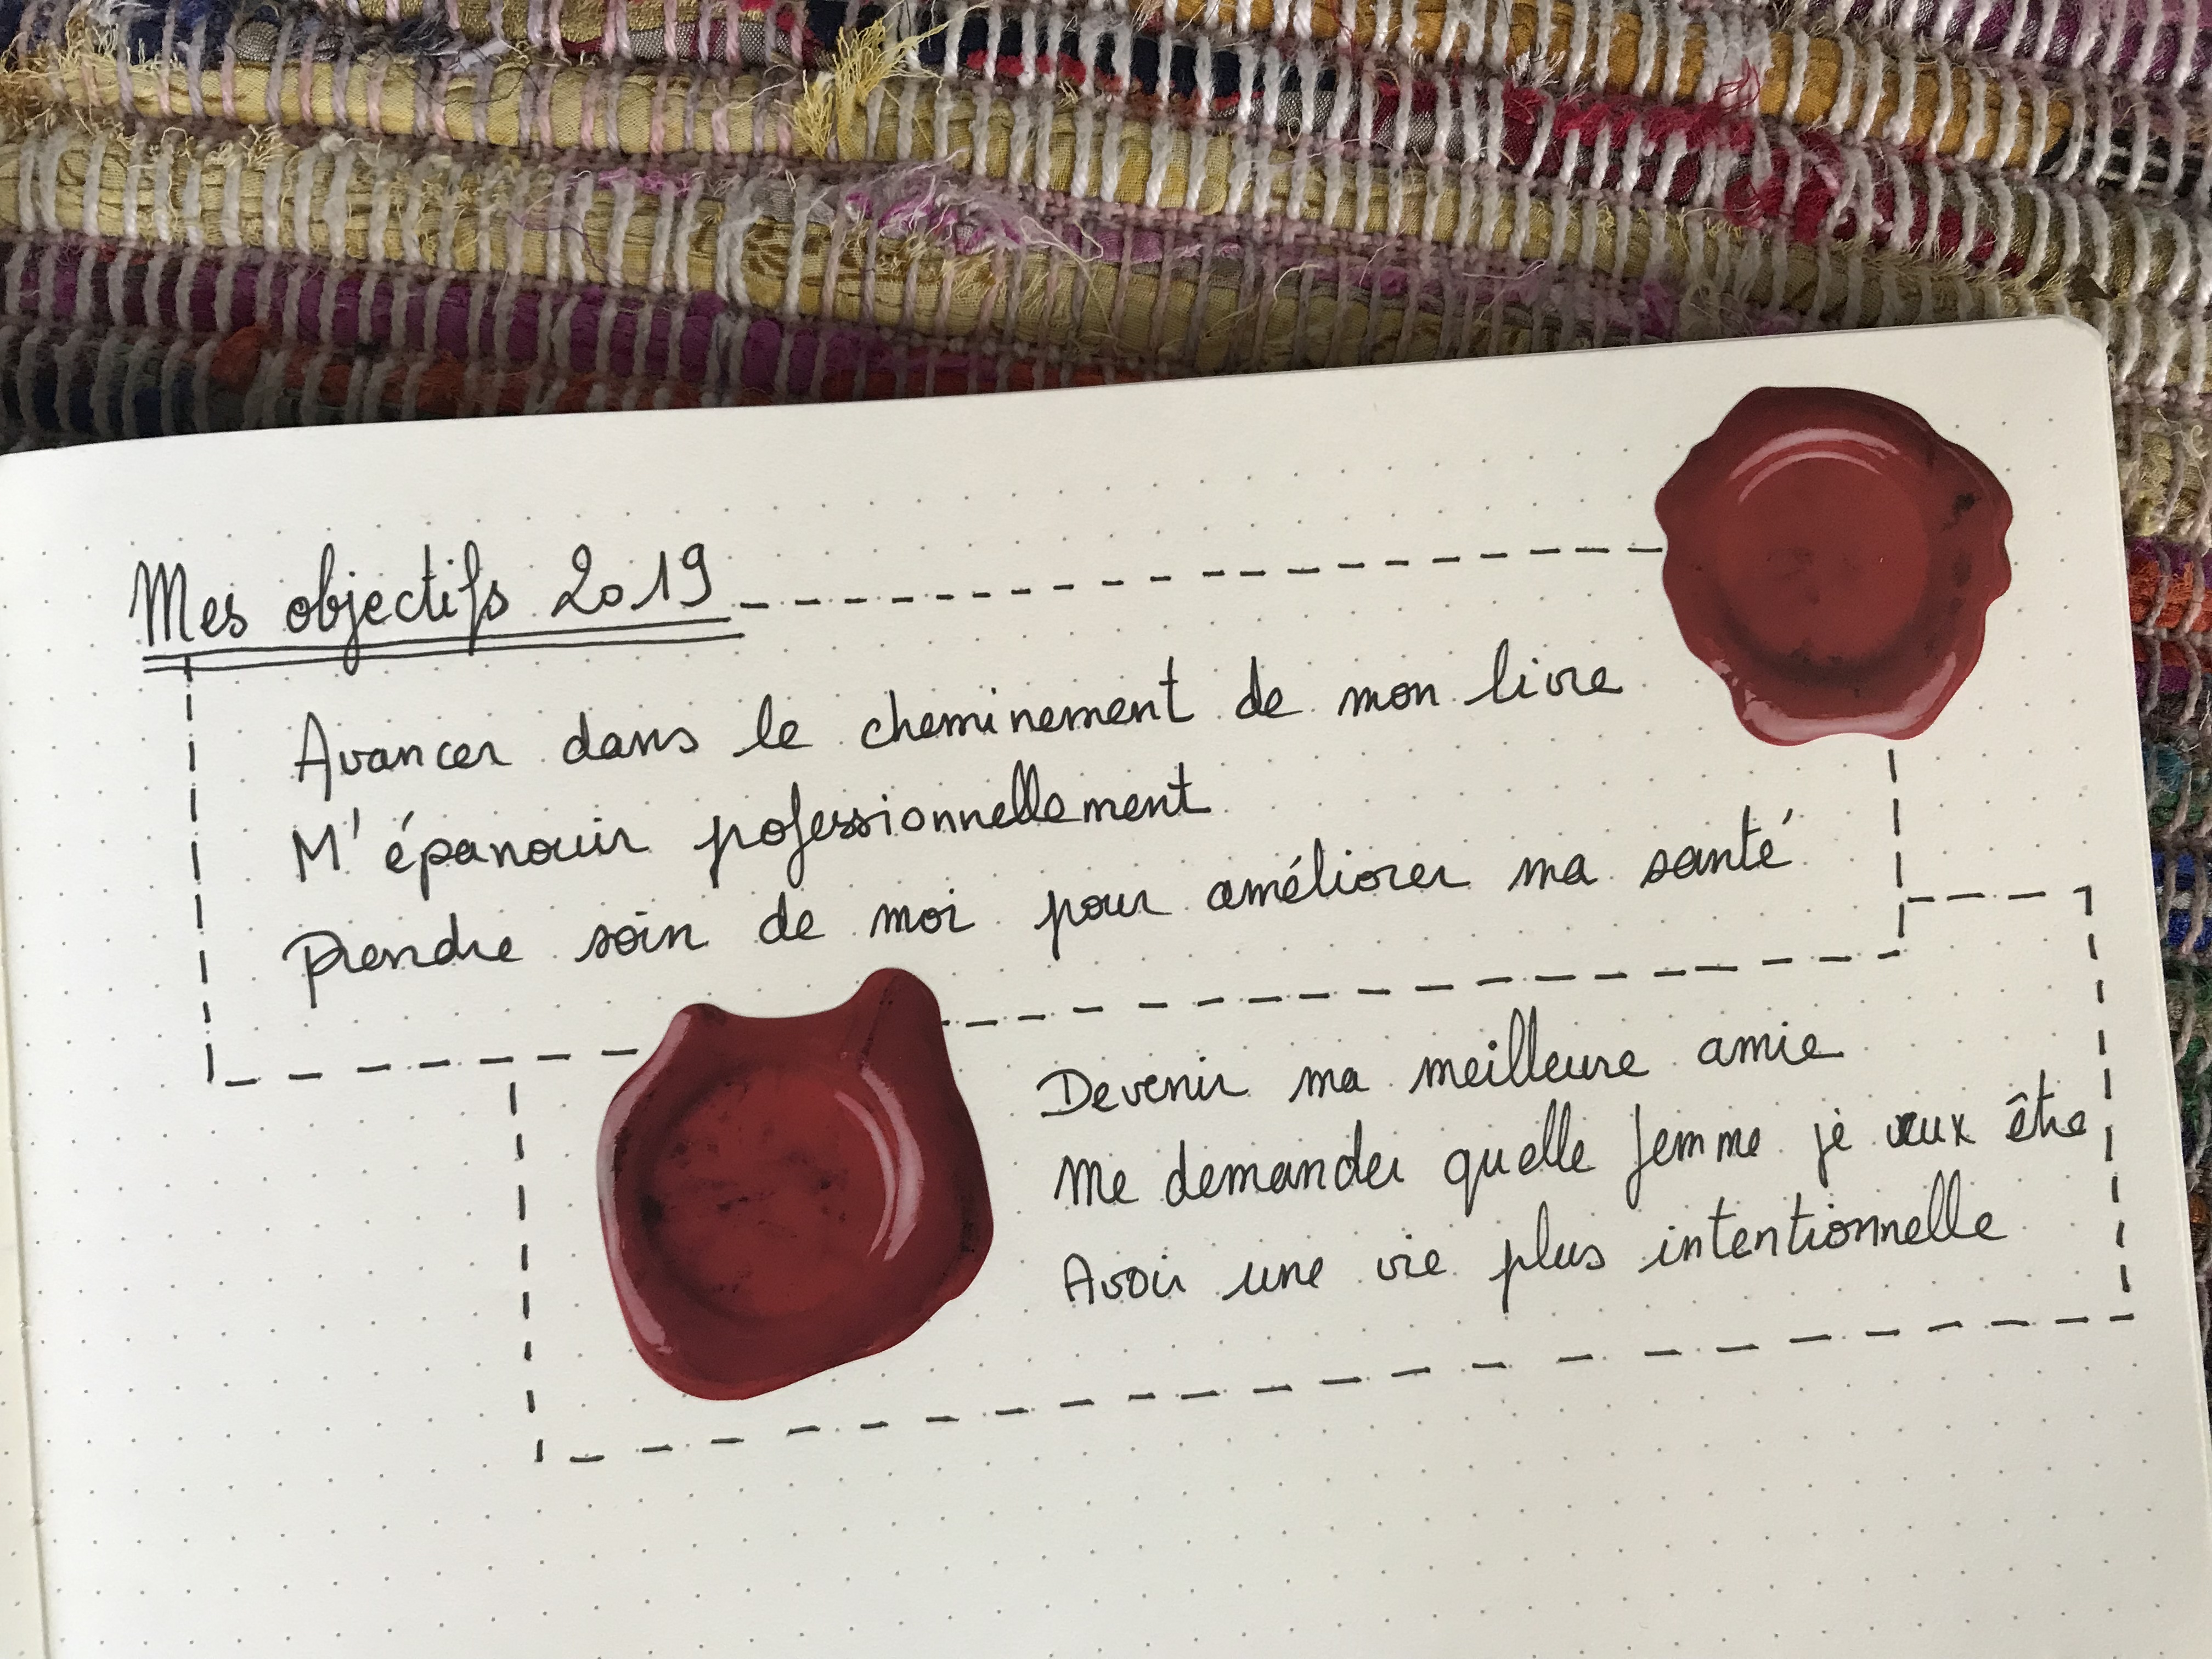 Mes objectifs 2019
Avancer dans le cheminement de mon livre
M'épanouir pofessionnellement
Prendre soin de moi pour améliorer ma santé
Devenir ma meilleure amie
Me demander quelle femme je veux être
Avoir une vie plus intentionnelle